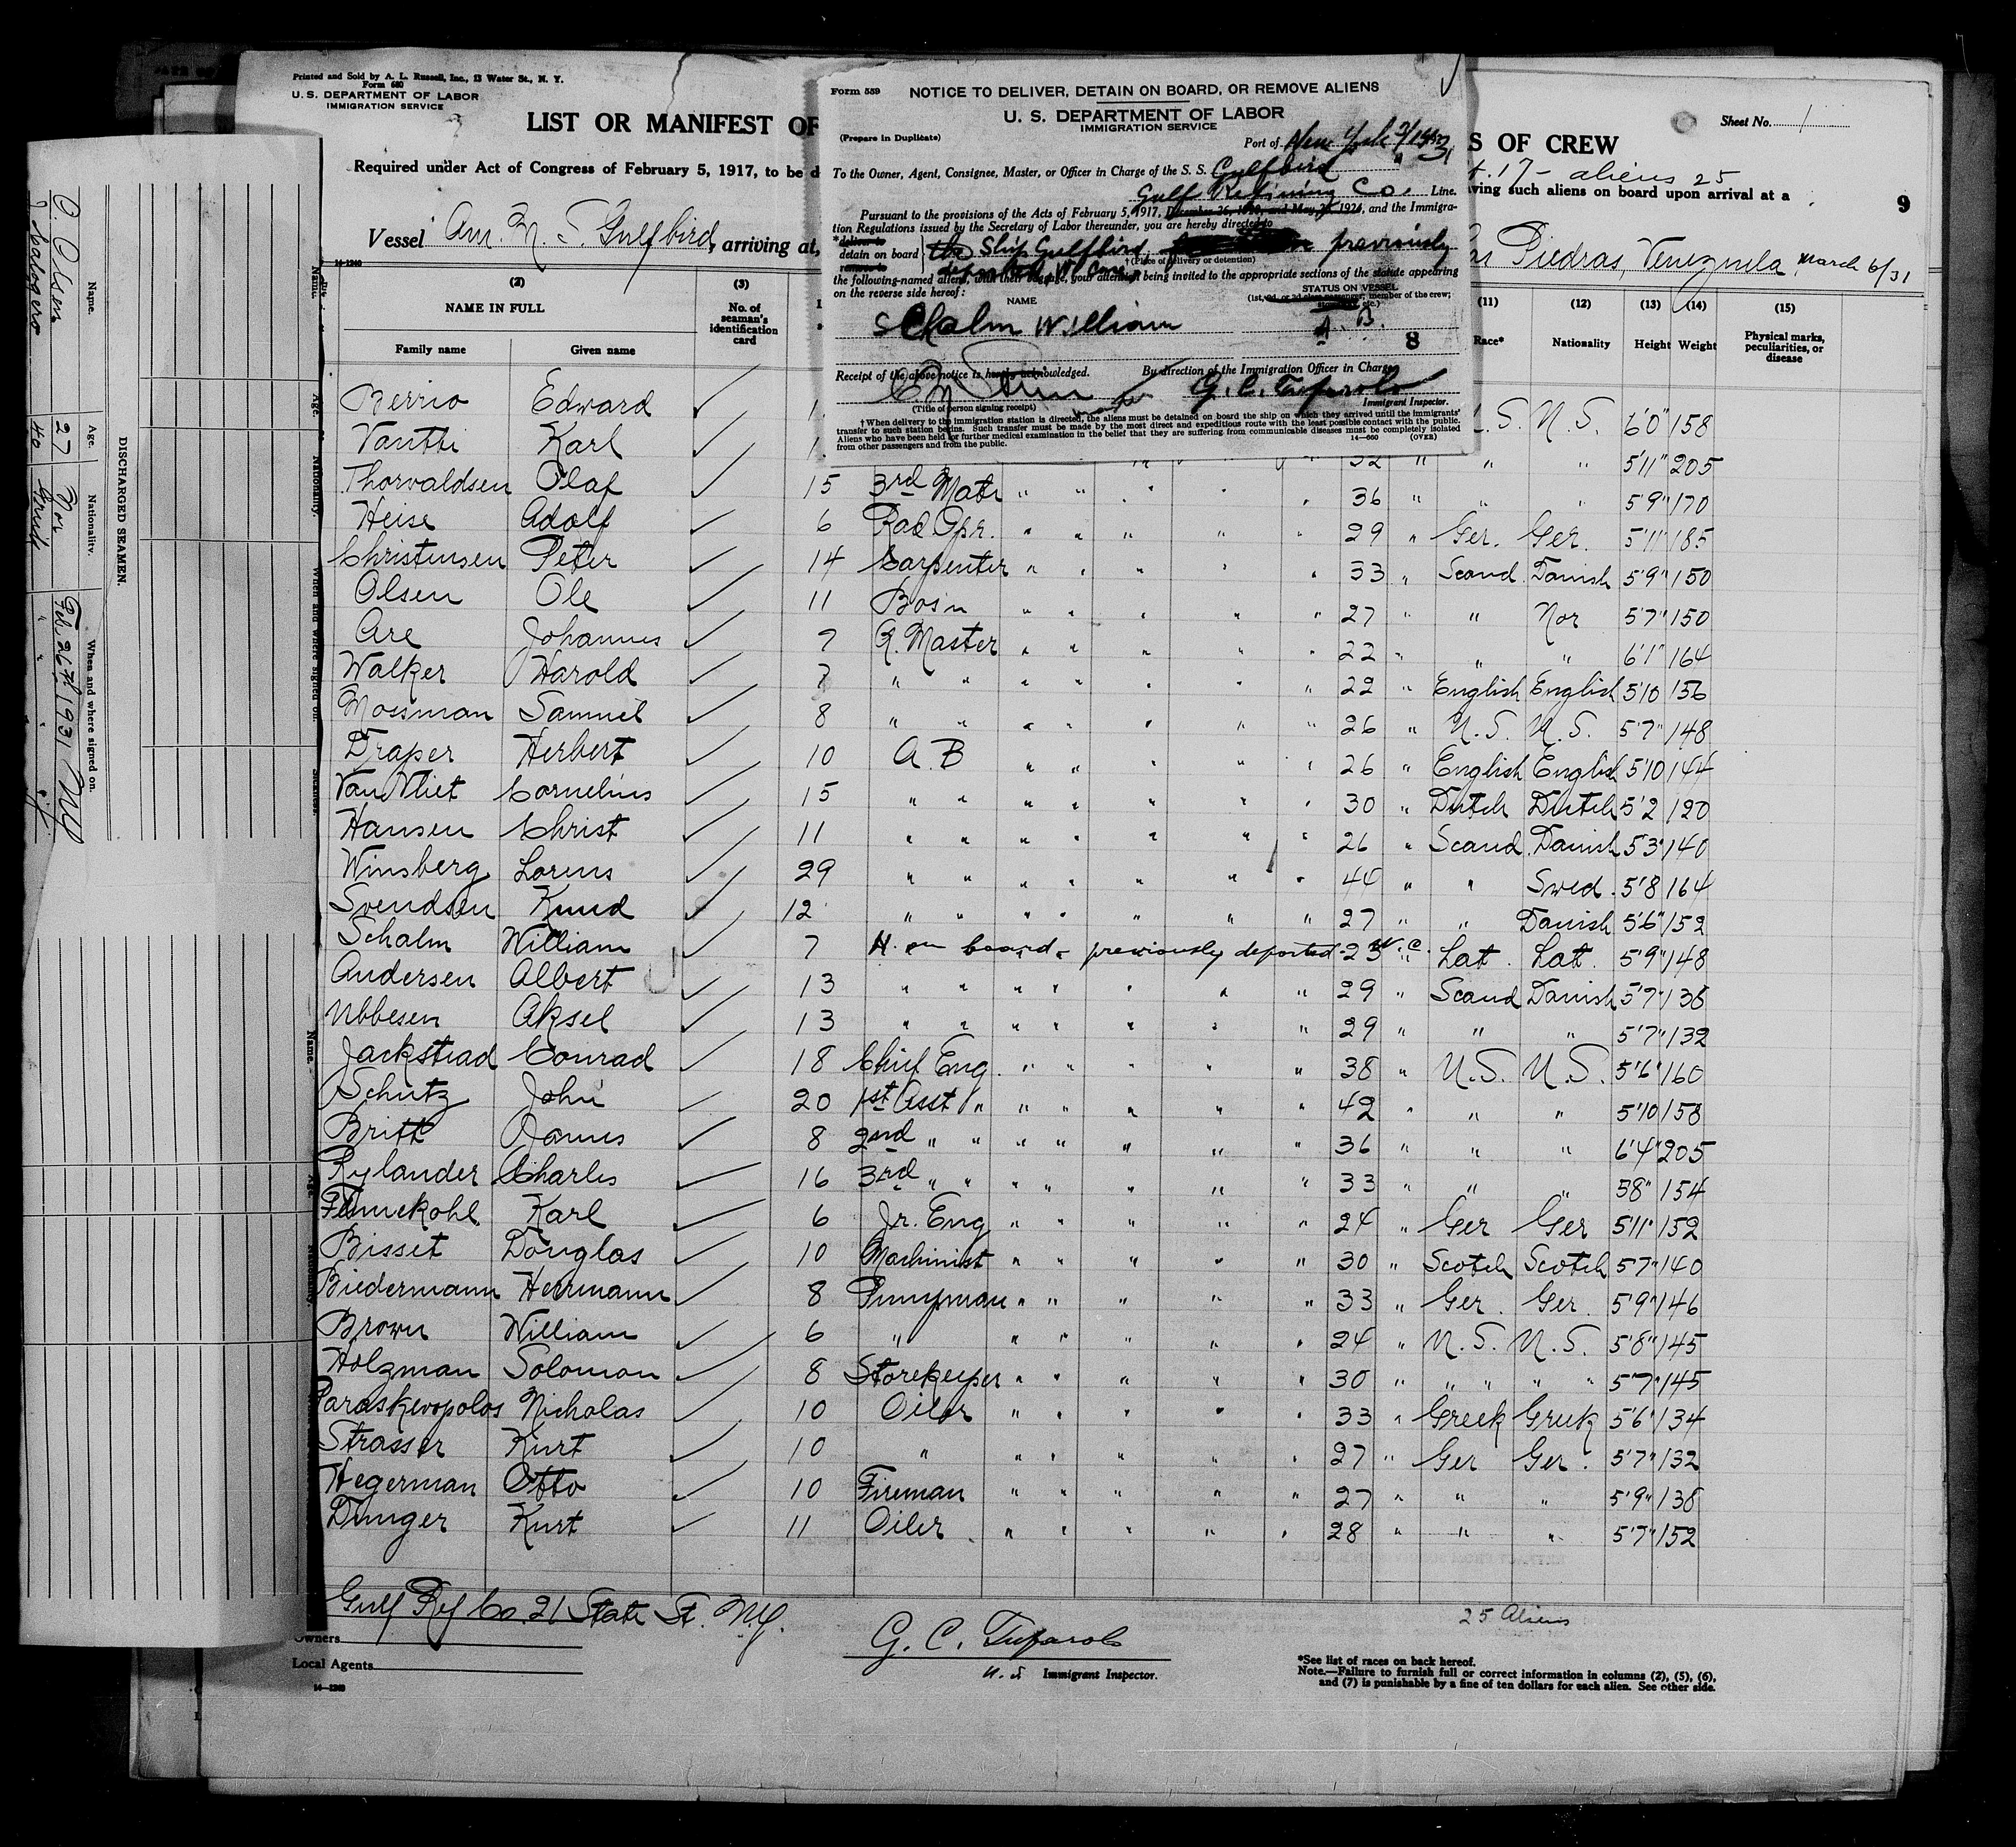 Printed and Sold by A. L. Russell, Inc., 13 Water St., N. Y.
Form 680
U. S. DEPARTMENT OF LABOR
IMMIGRATION SERVICE
LIST OR MANIFEST OF
S OF CREW
Sheet No. 1
17 - aliens 25
Required under Act of Congress of February 5, 1917, to be d
ving such aliens on board upon arrival at a
9
Vessel Am. M. S. Gulfbird, arriving at,
Piedras, Venezuela, March 6/31
14-1240
Form 559
NOTICE TO DELIVER, DETAIN ON BOARD, OR REMOVE ALIENS
U. S. DEPARTMENT OF LABOR
IMMIGRATION SERVICE
(Prepare in Duplicate)
Port of New York
To the Owner, Agent, Consignee, Master, or Officer in Charge of the S. S. Gulfbird
Gulf Refining Co. Line.
Pursuant to the provisions of the Acts of February 5, 1917, December 26, 1920, and May 26, 1924, and the Immigra-
tion Regulations issued by the Secretary of Labor thereunder, you are hereby directed to
*deliver to
detain on board the Ship Gulfbird, previously
remove to deported
†(Place of delivery or detention)
the following-named aliens, with their baggage, your attention being invited to the appropriate sections of the statute appearing
on the reverse side hereof:
NAME
STATUS ON VESSEL
(1st, 2d, or 3d class passenger; member of the crew;
stowaway, etc.)
Schalm William A. B.
8
Receipt of the above notice is hereby acknowledged.
By direction of the Immigration Officer in Charge
G. C. Tufarolo
(Title of person signing receipt) master
Immigrant Inspector.
†When delivery to the immigration station is directed, the aliens must be detained on board the ship on which they arrived until the immigrants'
transfer to such station begins. Such transfer must be made by the most direct and expeditious route with the least possible contact with the public.
Aliens who have been held for further medical examination in the belief that they are suffering from communicable diseases must be completely isolated
from other passengers and from the public.
14-660 (OVER)
(2) (3) (11) (12) (13) (14) (15)
NAME IN FULL
No. of seaman's identification card
Race* Nationality Height Weight Physical marks, peculiarities, or disease
Family name Given name
Berrio Edward S. U. S. 6'0" 158
Vantti Karl 32 " " " 5'11" 205
Thorvaldsen Olaf 15 3rd Mate " " " " " 36 " " " 5'9" 170
Heise Adolf 6 Rad Opr. " " " " " 29 " Ger. Ger. 5'11" 185
Christensen Peter 14 Carpenter " " " " " 33 " Scand. Danish 5'9" 150
Olsen Ole 11 Bos'n " " " " " 27 " " Nor 5'7" 150
Are Johannes 7 Q. Master " " " " " 22 " " " 6'1" 164
Walker Harold 7 " " " " " " " 22 " English English 5'10 156
Mossman Samuel 8 " " " " " " " 26 " U.S. U.S. 5'7" 148
Draper Herbert 10 A.B " " " " " 26 " English English 5'10 144
Van Vliet Cornelius 15 " " " " " " " 30 " Dutch Dutch 5'2 120
Hansen Christ 11 " " " " " " " 26 " Scand. Danish 5'3" 140
Winsberg Lorens 29 " " " " " " " 44 " " Swed. 5'8 164
Svendsen Knud 12 " " " " " " " 27 " " Danish 5'6" 152
Schalm William 7 H. on board - previously deported - 23 " Lat. Lat. 5'9" 148
Andersen Albert 13 " " " " " " " 29 " Scand Danish 5'7" 136
Ubbesen Aksel 13 " " " " " " " 29 " " " 5'7" 132
Jackstead Conrad 18 Chief Eng. " " " " " 38 " U.S. U.S. 5'6" 160
Schutz John 20 1st Asst " " " " " " 42 " " " 5'10 158
Britt James 8 2nd " " " " " " " 36 " " " 6'4" 205
Rylander Charles 16 3rd " " " " " " " 33 " " " 5'8" 154
Karl 6 Jr. Eng " " " " " 24 " Ger Ger 5'11" 152
Bisset Douglas 10 Machinist " " " " " 30 " Scotch Scotch 5'7" 140
Biedermann Herrmann 8 Pumpman " " " " " 33 " Ger. Ger. 5'9" 146
Brown William 6 " " " " " " 24 " U.S. U.S. 5'8" 145
Holzman Solomon 8 Storekeeper " " " " " 30 " " " " " 5'7" 145
Paraskevopolos Nicholas 10 Oiler " " " " " 33 " Greek Greek 5'6" 134
Strasser Kurt 10 " " " " " " 27 " Ger Ger. 5'7" 132
Hegerman Otto 10 Fireman " " " " " 27 " " " 5'9" 138
Dunger Kurt 11 Oiler " " " " " 28 " " " 5'7" 152
Gulf Ref Co. 21 State St. N.Y.
25 Aliens
Owners
Local Agents
14-1240
G. C. Tufarolo
U. S Immigrant Inspector.
*See list of races on back hereof.
Note.—Failure to furnish full or correct information in columns (2), (5), (6),
and (7) is punishable by a fine of ten dollars for each alien. See other side.
DISCHARGED SEAMEN.
Name. Age. Nationality. When and where signed on.
O. Olsen 27 Nor Feb 26th 1931 NY
J Calogero 40 Greek " " "
Name. Age. Nationality. When and where signed on.
Name. Age. Nationality.